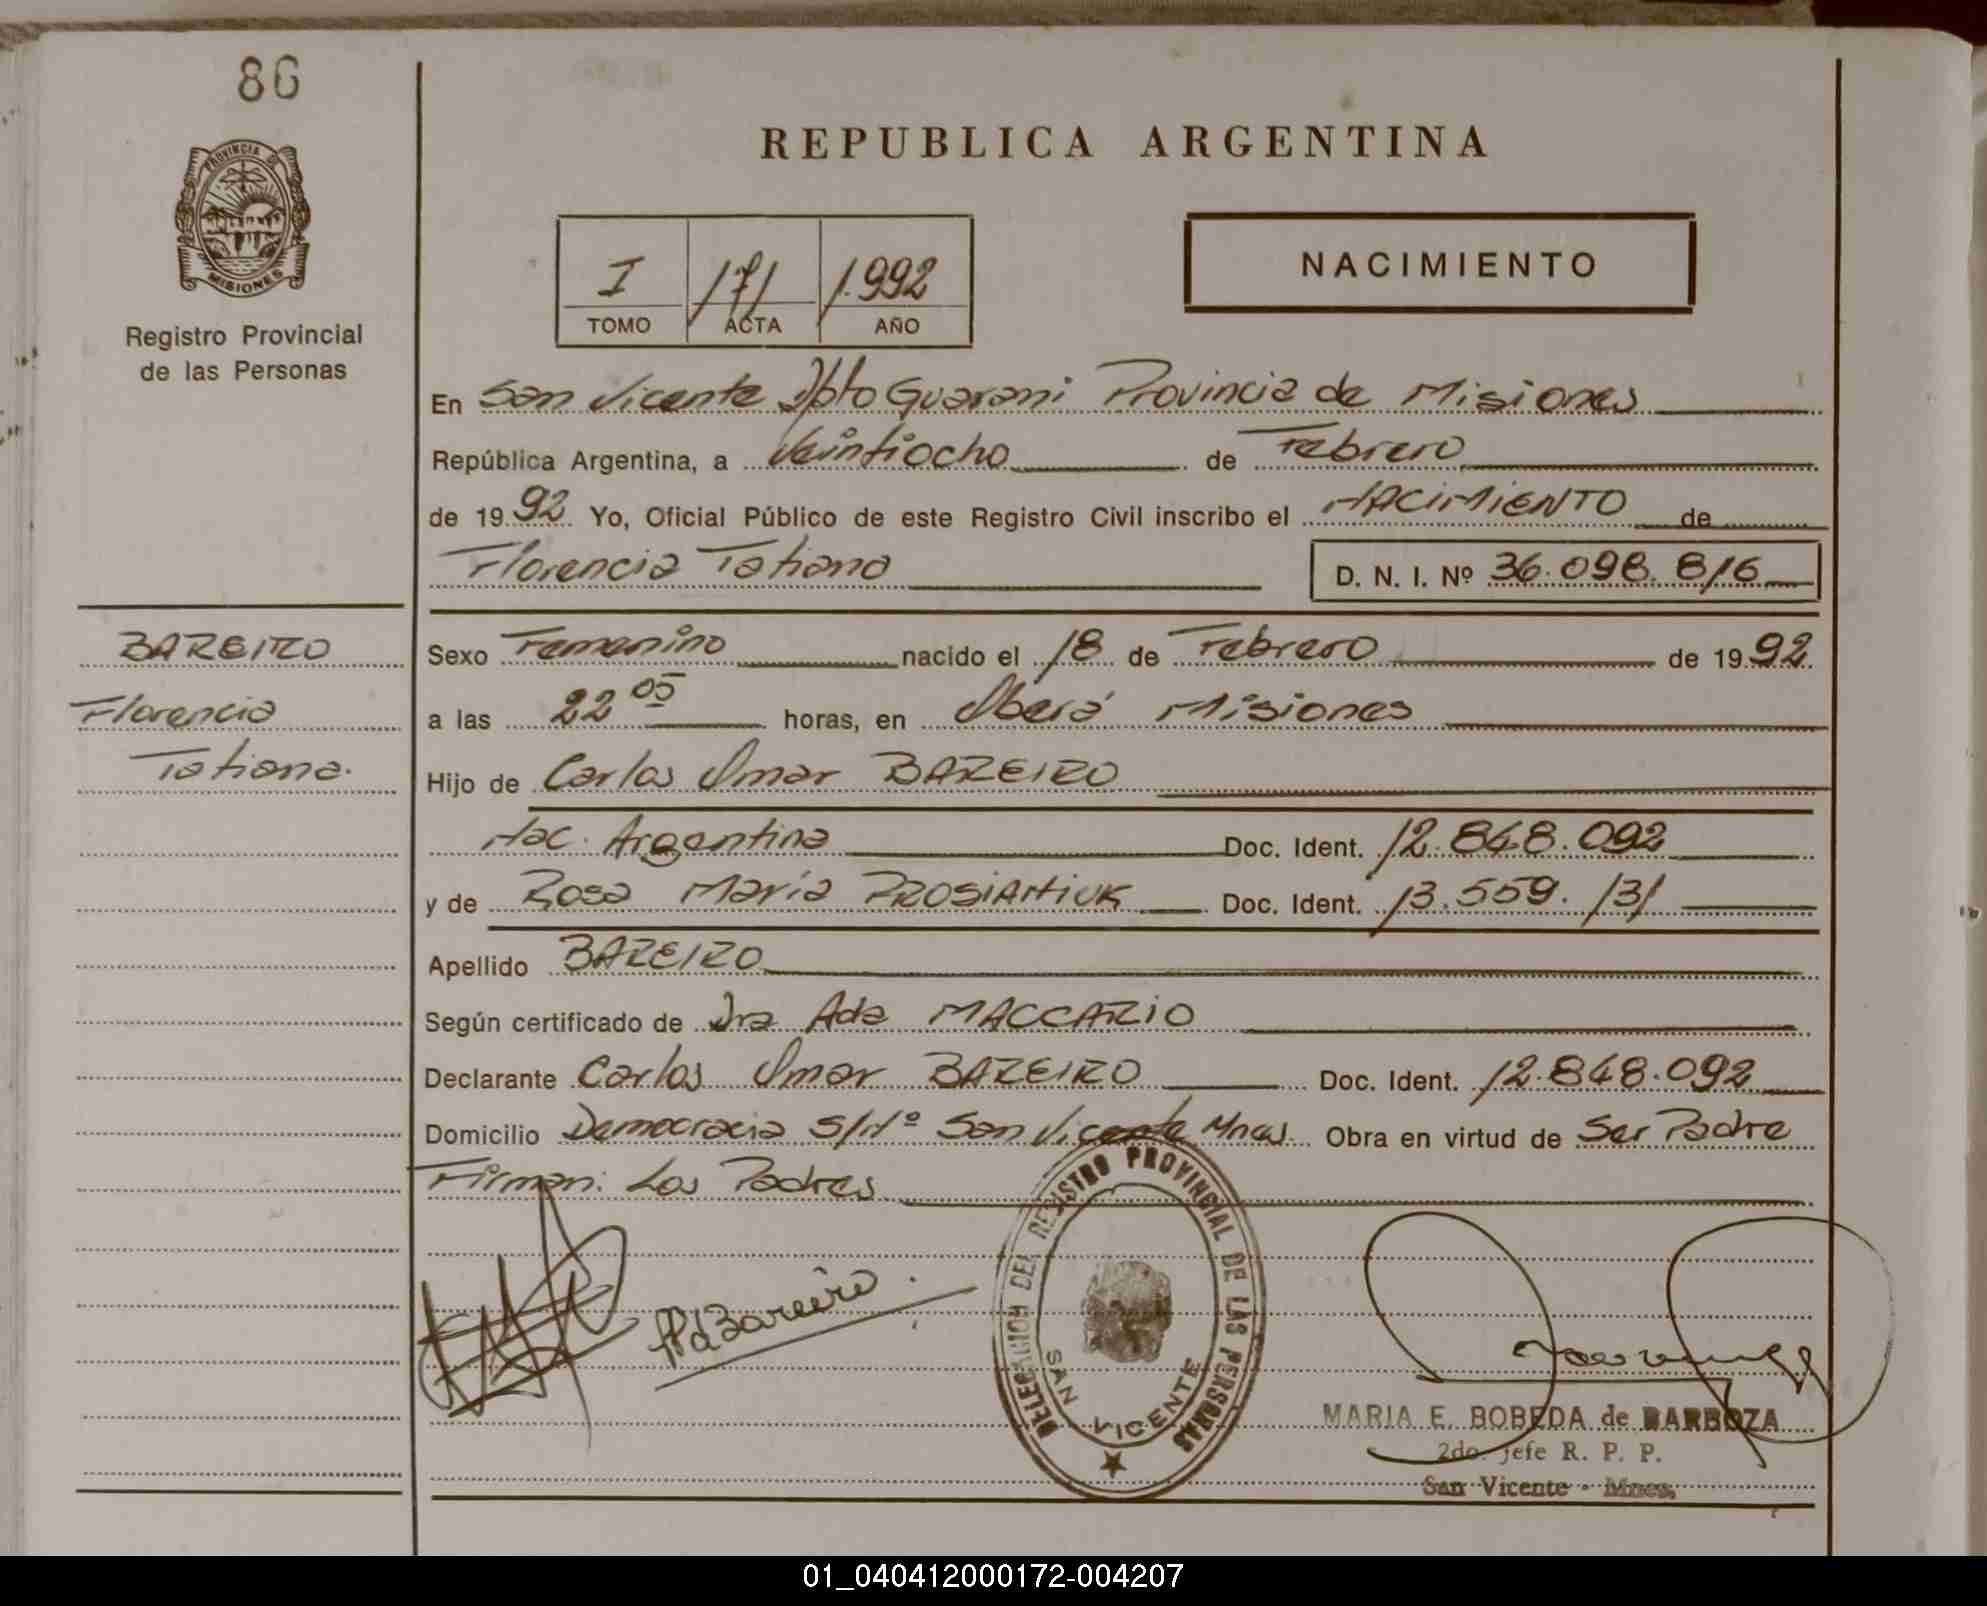 86
PROVINCIA DE
MISIONES
Registro Provincial
de las Personas
REPUBLICA ARGENTINA
I 171 1.992
TOMO ACTA AÑO
NACIMIENTO
En San Vicente Dpto Guarani Provincia de Misiones
República Argentina, a Veintiocho de Febrero
de 1992 Yo, Oficial Público de este Registro Civil inscribo el NACIMIENTO de
Florencia Tatiana D. N. I. Nº 36.098.816
BAREIRO
Florencia
Tatiana.
Sexo Femenino nacido el 18 de Febrero de 1992
a las 22 05 horas, en Oberá Misiones
Hijo de Carlos Omar BAREIRO
Nac. Argentina Doc. Ident. 12.848.092
y de Rosa María PROSIANIUK Doc. Ident. 13.559.131
Apellido BAREIRO
Según certificado de Dra Ada MACCARIO
Declarante Carlos Omar BAREIRO Doc. Ident. 12.848.092
Domicilio Democracia S/Nº San Vicente Mnes. Obra en virtud de Ser Padre
Firman: Los Padres
Bareiro
DELEGACION DEL REGISTRO PROVINCIAL DE LAS PERSONAS
SAN VICENTE
MARIA E. BOBEDA de BARBOZA
2do. Jefe R. P. P.
San Vicente - Mnes.
01_040412000172-004207